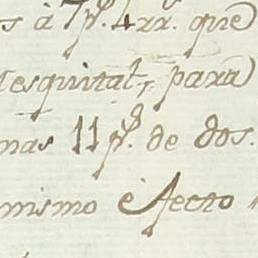 s à 7p.s 4rr.s que
esquital, para
mas 11 p.s de dos.
mismo efecto